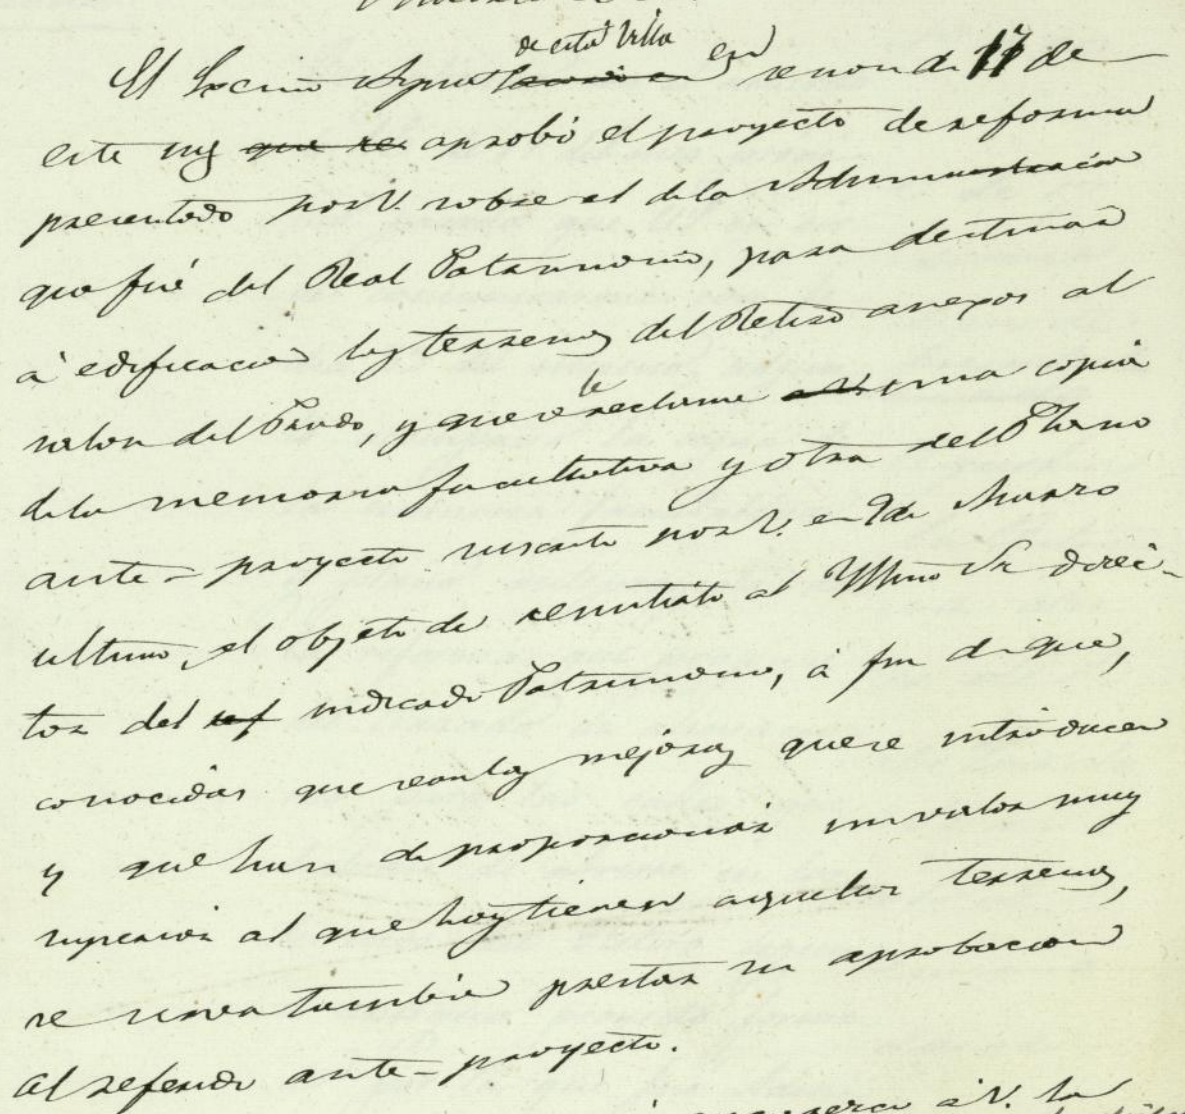 de esta Villa
El Excmo Ayunto en sesion de 17 de
este mes que se aprobó el proyecto de reforma
presentado por V. sobre el de la Administracion
que fué del Real Patrimonio, para destinar
á edificacion los terrenos del Retiro anexos al
salon del Prado, y que se le reclame una copia
de la memoria facultativa y otra del Plano
ante-proyecto suscrito por V. en 9 de Marzo
ultimo, el objeto de remitirlo al Yllmo Sr direc-
tor del ref indicado Patrimonio, á fin de que,
conocidas que sean las mejoras que se introducen
y que han de proporcionar un valor muy
superior al que hoy tienen aquellos terrenos,
se sirva tambien prestar su aprobacion
al referido ante-proyecto.
á V. la